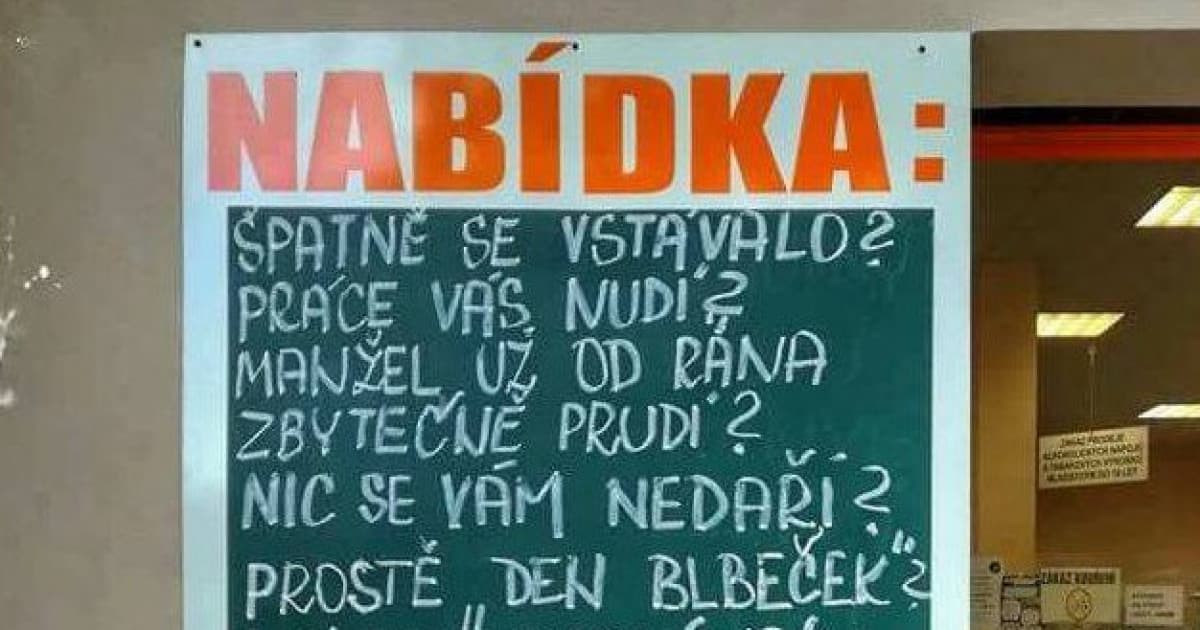 NABÍDKA:
ŠPATNĚ SE VSTÁVALO?
PRÁCE VÁS NUDÍ?
MANŽEL UŽ OD RÁNA
ZBYTEČNĚ PRUDÍ?
NIC SE VÁM NEDAŘÍ?
PROSTĚ „DEN BLBEČEK"?
ZÁKAZ PRODEJE
ALKOHOLICKÝCH NÁPOJŮ
A TABÁKOVÝCH VÝROBKŮ
MLADISTVÝM DO 18 LET
ZÁKAZ KOUŘENÍ